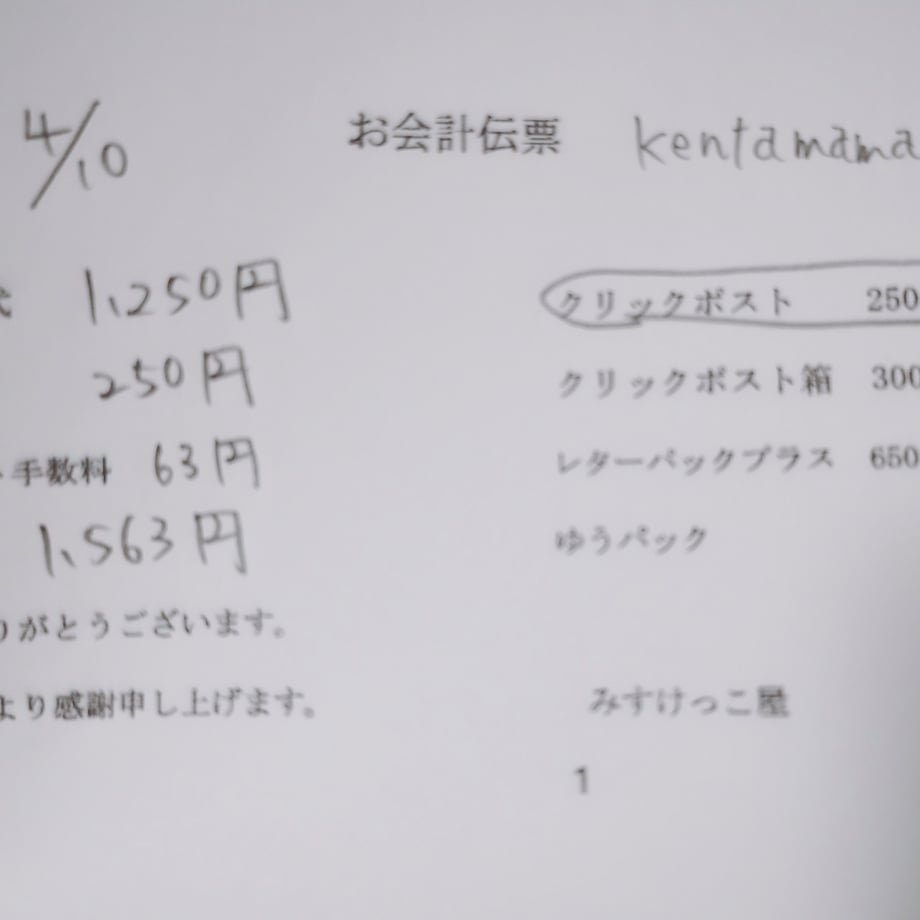 4/10 お会計伝票 kentamama
1,250円 クリックポスト 250
250円 クリックポスト箱 300
手数料 63円 レターパックプラス 650
1,563円 ゆうパック
りがとうございます。
より感謝申し上げます。 みすけっこ屋
1